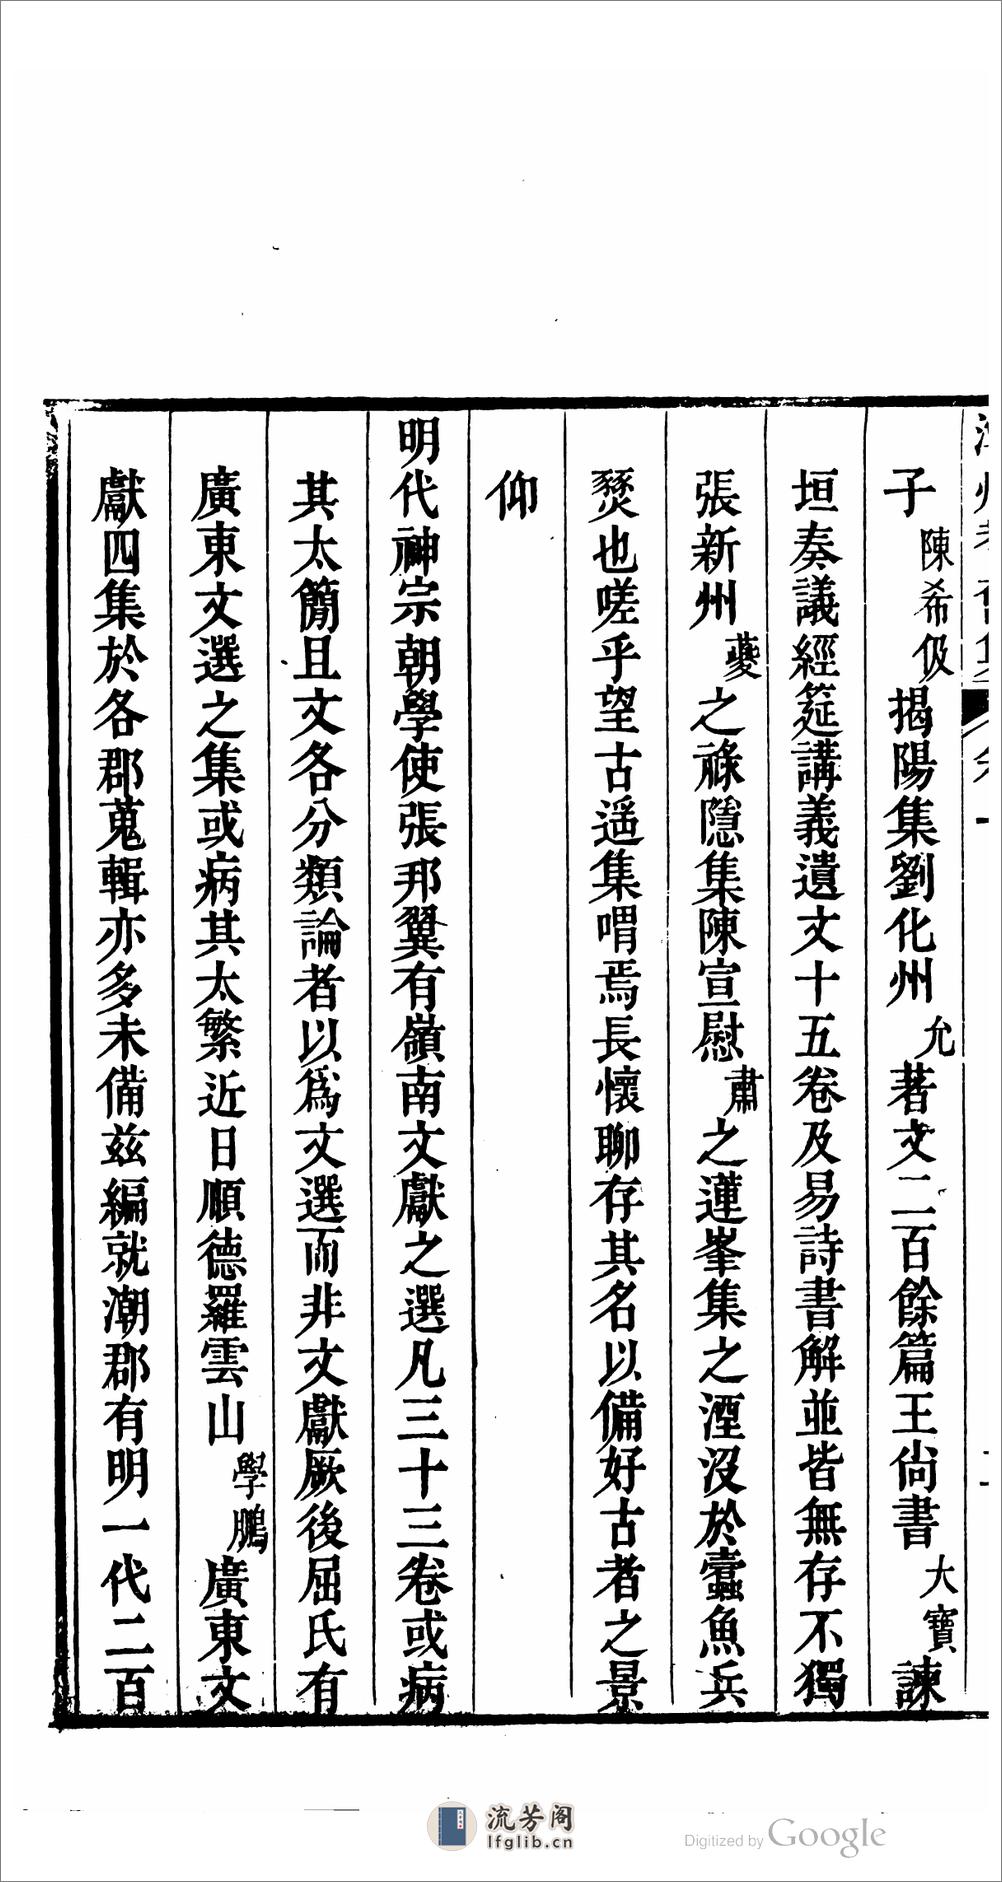 子陳希伋揭陽集劉化州允著文二百餘篇王尙書大寶諫
垣奏議經筵講義遺文十五卷及易詩書解並皆無存不獨
張新州夔之祿隱集陳宣慰肅之蓮峯集之湮沒於蠹魚兵
燹也嗟乎望古遥集喟焉長懷聊存其名以備好古者之景
仰
明代神宗朝學使張邦翼有嶺南文獻之選凡三十三卷或病
其太簡且文各分類論者以爲文選而非文獻厥後屈氏有
廣東文選之集或病其太繁近日順德羅雲山學鵬廣東文
獻四集於各郡蒐輯亦多未備兹編就潮郡有明一代二百
流芳阁
lfglib.cn
Digitized by Google